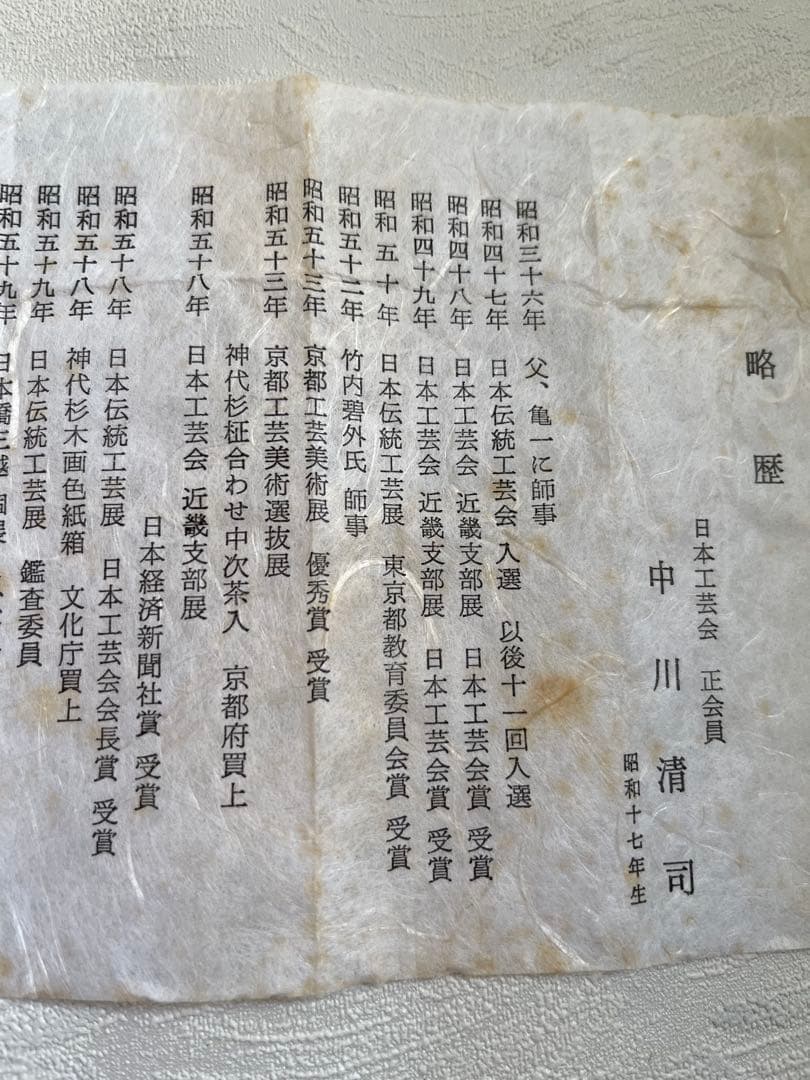 略歴
日本工芸会 正会員
中川清司
昭和十七年生
昭和三十六年 父、亀一に師事
昭和四十七年 日本伝統工芸会 入選 以後十一回入選
昭和四十八年 日本工芸会 近畿支部展 日本工芸会賞 受賞
昭和四十九年 日本工芸会 近畿支部展 日本工芸会賞 受賞
昭和五十年 日本伝統工芸展 東京都教育委員会賞 受賞
昭和五十二年 竹内碧外氏 師事
昭和五十三年 京都工芸美術展 優秀賞 受賞
昭和五十三年 京都工芸美術選抜展
神代杉柾合わせ中次茶入 京都府買上
昭和五十八年 日本工芸会 近畿支部展
日本経済新聞社賞 受賞
昭和五十八年 日本伝統工芸展 日本工芸会会長賞 受賞
昭和五十八年 神代杉木画色紙箱 文化庁買上
昭和五十九年 日本伝統工芸展 鑑査委員
昭和五十九年 日本橋三越